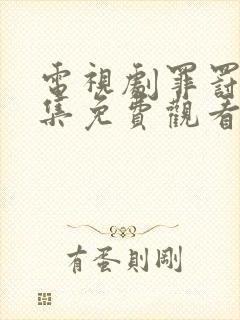 電視劇罪罰
集免費觀看
有蛋則剛